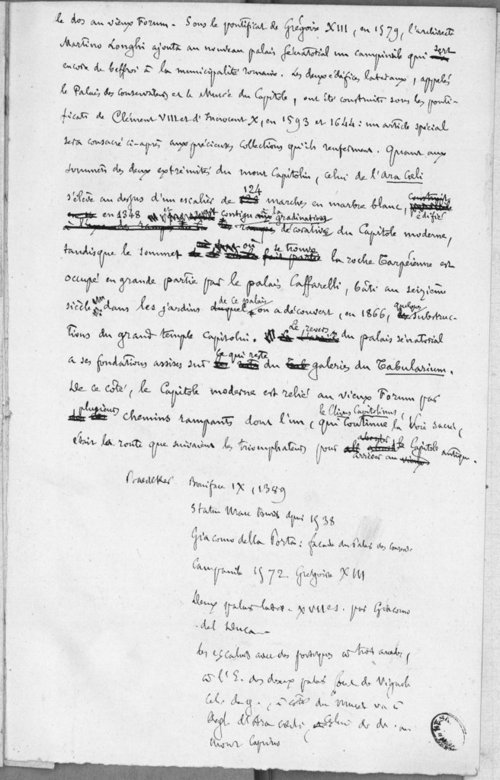 le dos au vieux Forum. Sous le pontificat de Grégoire XIII, en 1579, l'architecte
Martino Longhi ajouta au nouveau palais sénatorial un campanile qui sert
encore de beffroi à la municipalité romaine. Les deux édifices latéraux, appelés
le Palais des Conservateurs et le Musée du Capitole, ont été construits sous les ponti-
ficats de Clément VIII et d'Innocent X, en 1593 et 1644 : un article spécial
sera consacré ci-après aux précieuses collections qu'ils renferment. Quant aux
sommets des deux extrémités du mont Capitolin, celui de l'Ara Cœli
s'élève au dessus d'un escalier de 124 marches en marbre blanc, édifié
en 1348 contigu à la gradination décorative du Capitole moderne,
tandisque le sommet où se trouve la roche Tarpéienne est
occupé en grande partie par le palais Caffarelli, bâti au seizième
siècle dans les jardins de ce palais on a découvert, en 1866, quelques substruc-
tions du grand temple capitolin. Le revers du palais sénatorial
a ses fondations assises sur ce qui reste du galeries du Tabularium.
De ce côté, le Capitole moderne est relié au vieux Forum par
plusieurs chemins rampants dont l'un, le Clivus Capitolinus, qui continue la Voie sacrée,
était la route que suivaient les triomphateurs pour arriver au Capitole antique.
Baedeker Boniface IX, 1389
Statue Marc Aurèle depuis 1538
Giacomo della Porta : façade du Palais des Conser-
Campanile 1572 Grégoire XIII
Deux palais latér. XVIIe s. par Giacomo
del Duca
les escaliers avec des portiques à trois arcades,
à l'E. des deux palais sont de Vignole
celui de g., à côté du musée va à
l'égl. d'Ara cœli, celui de dr. au
mont Caprino